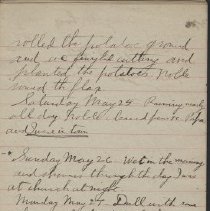 rolled the potatoe ground
and we finished cutting and
planted the potatoes. Noble
sowed the flax
Saturday May 25 Raining nearly
all day Noble and Papa
and in town
Sunday May 26. Wet in the morning
and showers through the day I was
at church at night
Monday May 27. Dull with some